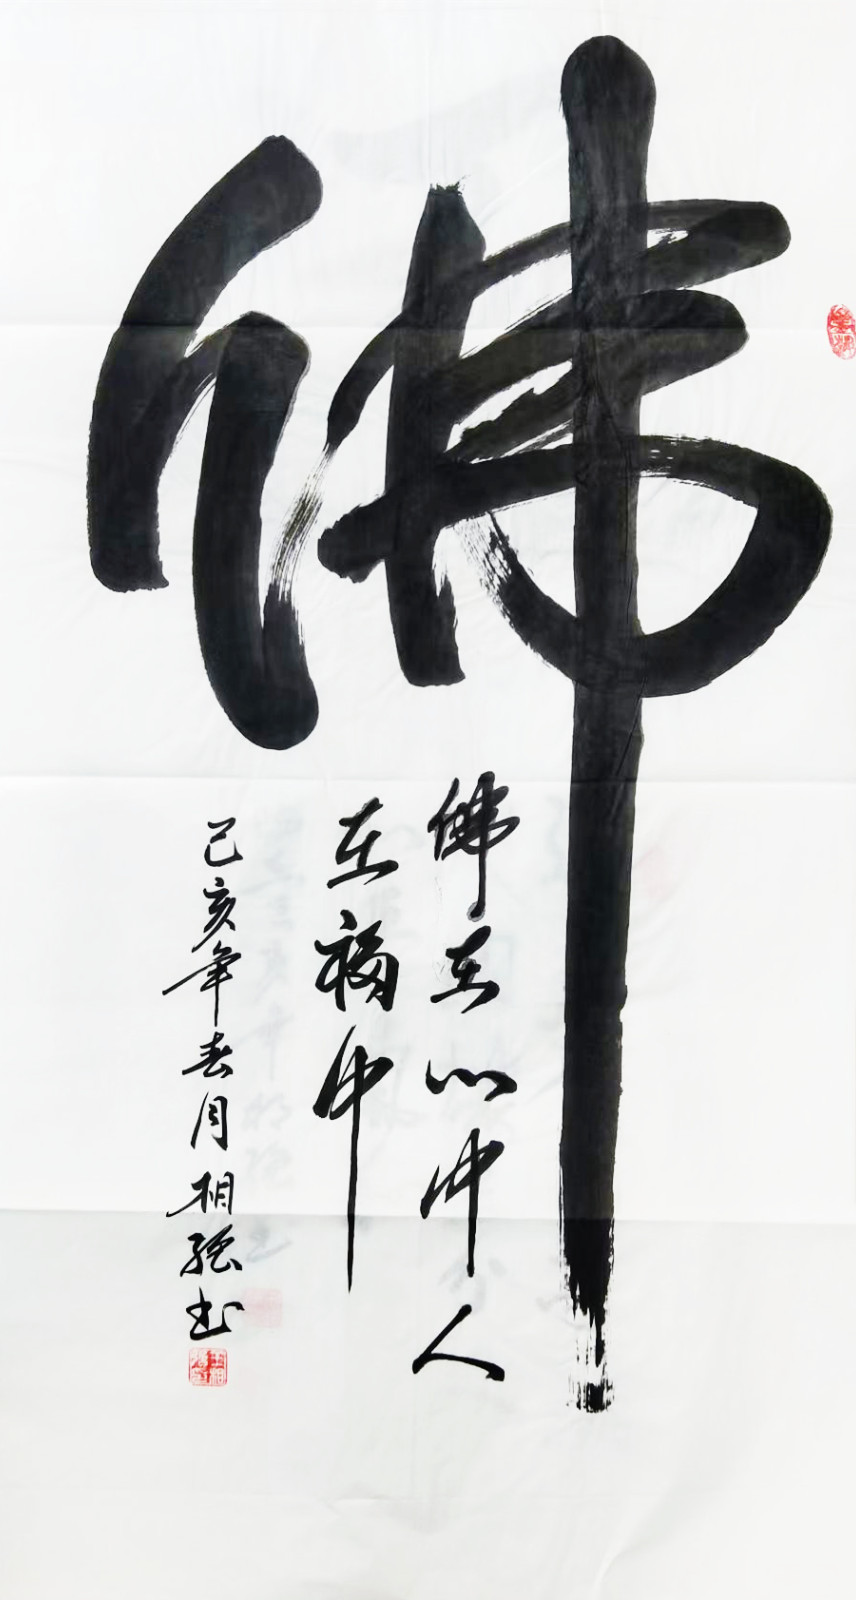 佛
佛在心中人
在福中
己亥年春月相强书